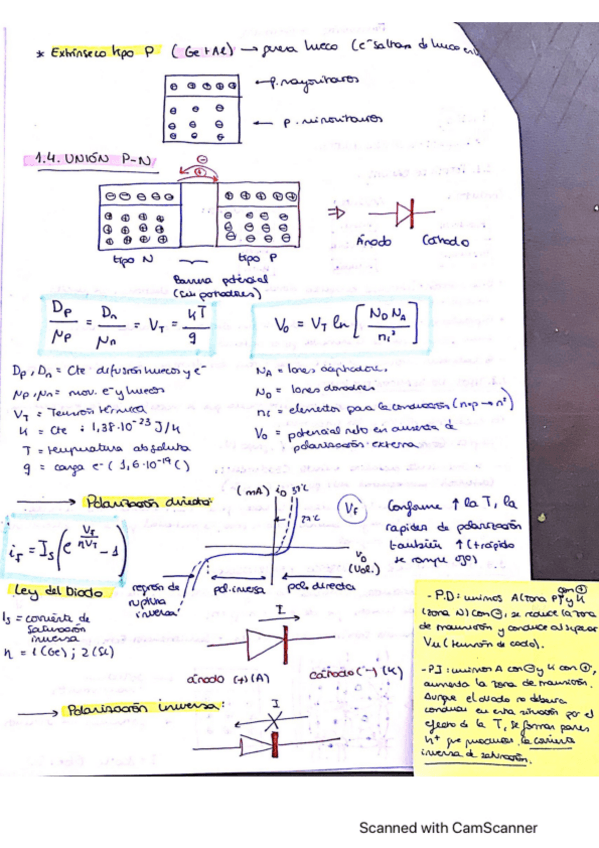 * Extrínseco tipo P (Ge + Al) → pura hueco (e⁻ saltan de hueco en
→ p. mayoritarios
← p. minoritarios
1.4. UNIÓN P-N
⇒ Ánodo Cátodo
tipo N tipo P
Barrera potencial
(sin portadores)
Dp/μp = Dn/μn = VT = kT/q
V0 = VT ln [ND NA / ni²]
Dp, Dn = Cte difusión huecos y e⁻
μp, μn = mov. e⁻ y huecos
VT = Tensión térmica
k = Cte : 1,38·10⁻²³ J/k
T = temperatura absoluta
q = carga e⁻ (1,6·10⁻¹⁹ C)
NA = Iones aceptadores.
ND = Iones donadores
ni = elementos para la conducción (n·p → n²)
V0 = potencial neto en ausencia de
polarización externa
→ Polarización directa:
if = Is (e^(Vf/nVT) - 1)
Ley del Diodo
Is = corriente de
saturación
inversa
n = 1 (Ge) ; 2 (Si)
(mA) iD 37ºC
27ºC
VD
(Vol.)
región de
ruptura
inversa
pol. inversa
pol. directa
Vf
Conforme ↑ la T, la
rapidez de polarización
también ↑ (+ rápido
se rompe ojo)
I
ánodo (+) (A) cátodo (-) (K)
→ Polarización inversa:
I
- P.D: unimos A (zona P) con ⊕ y K
(zona N) con ⊖, se reduce la zona
de transición y conduce al superar
Vu (tensión de codo).
- P.I: unimos A con ⊖ y K con ⊕,
aumenta la zona de transición.
Aunque el diodo no debería
conducir en esta situación por el
efecto de la T, se forman pares
que producen la corriente
inversa de saturación.
Scanned with CamScanner